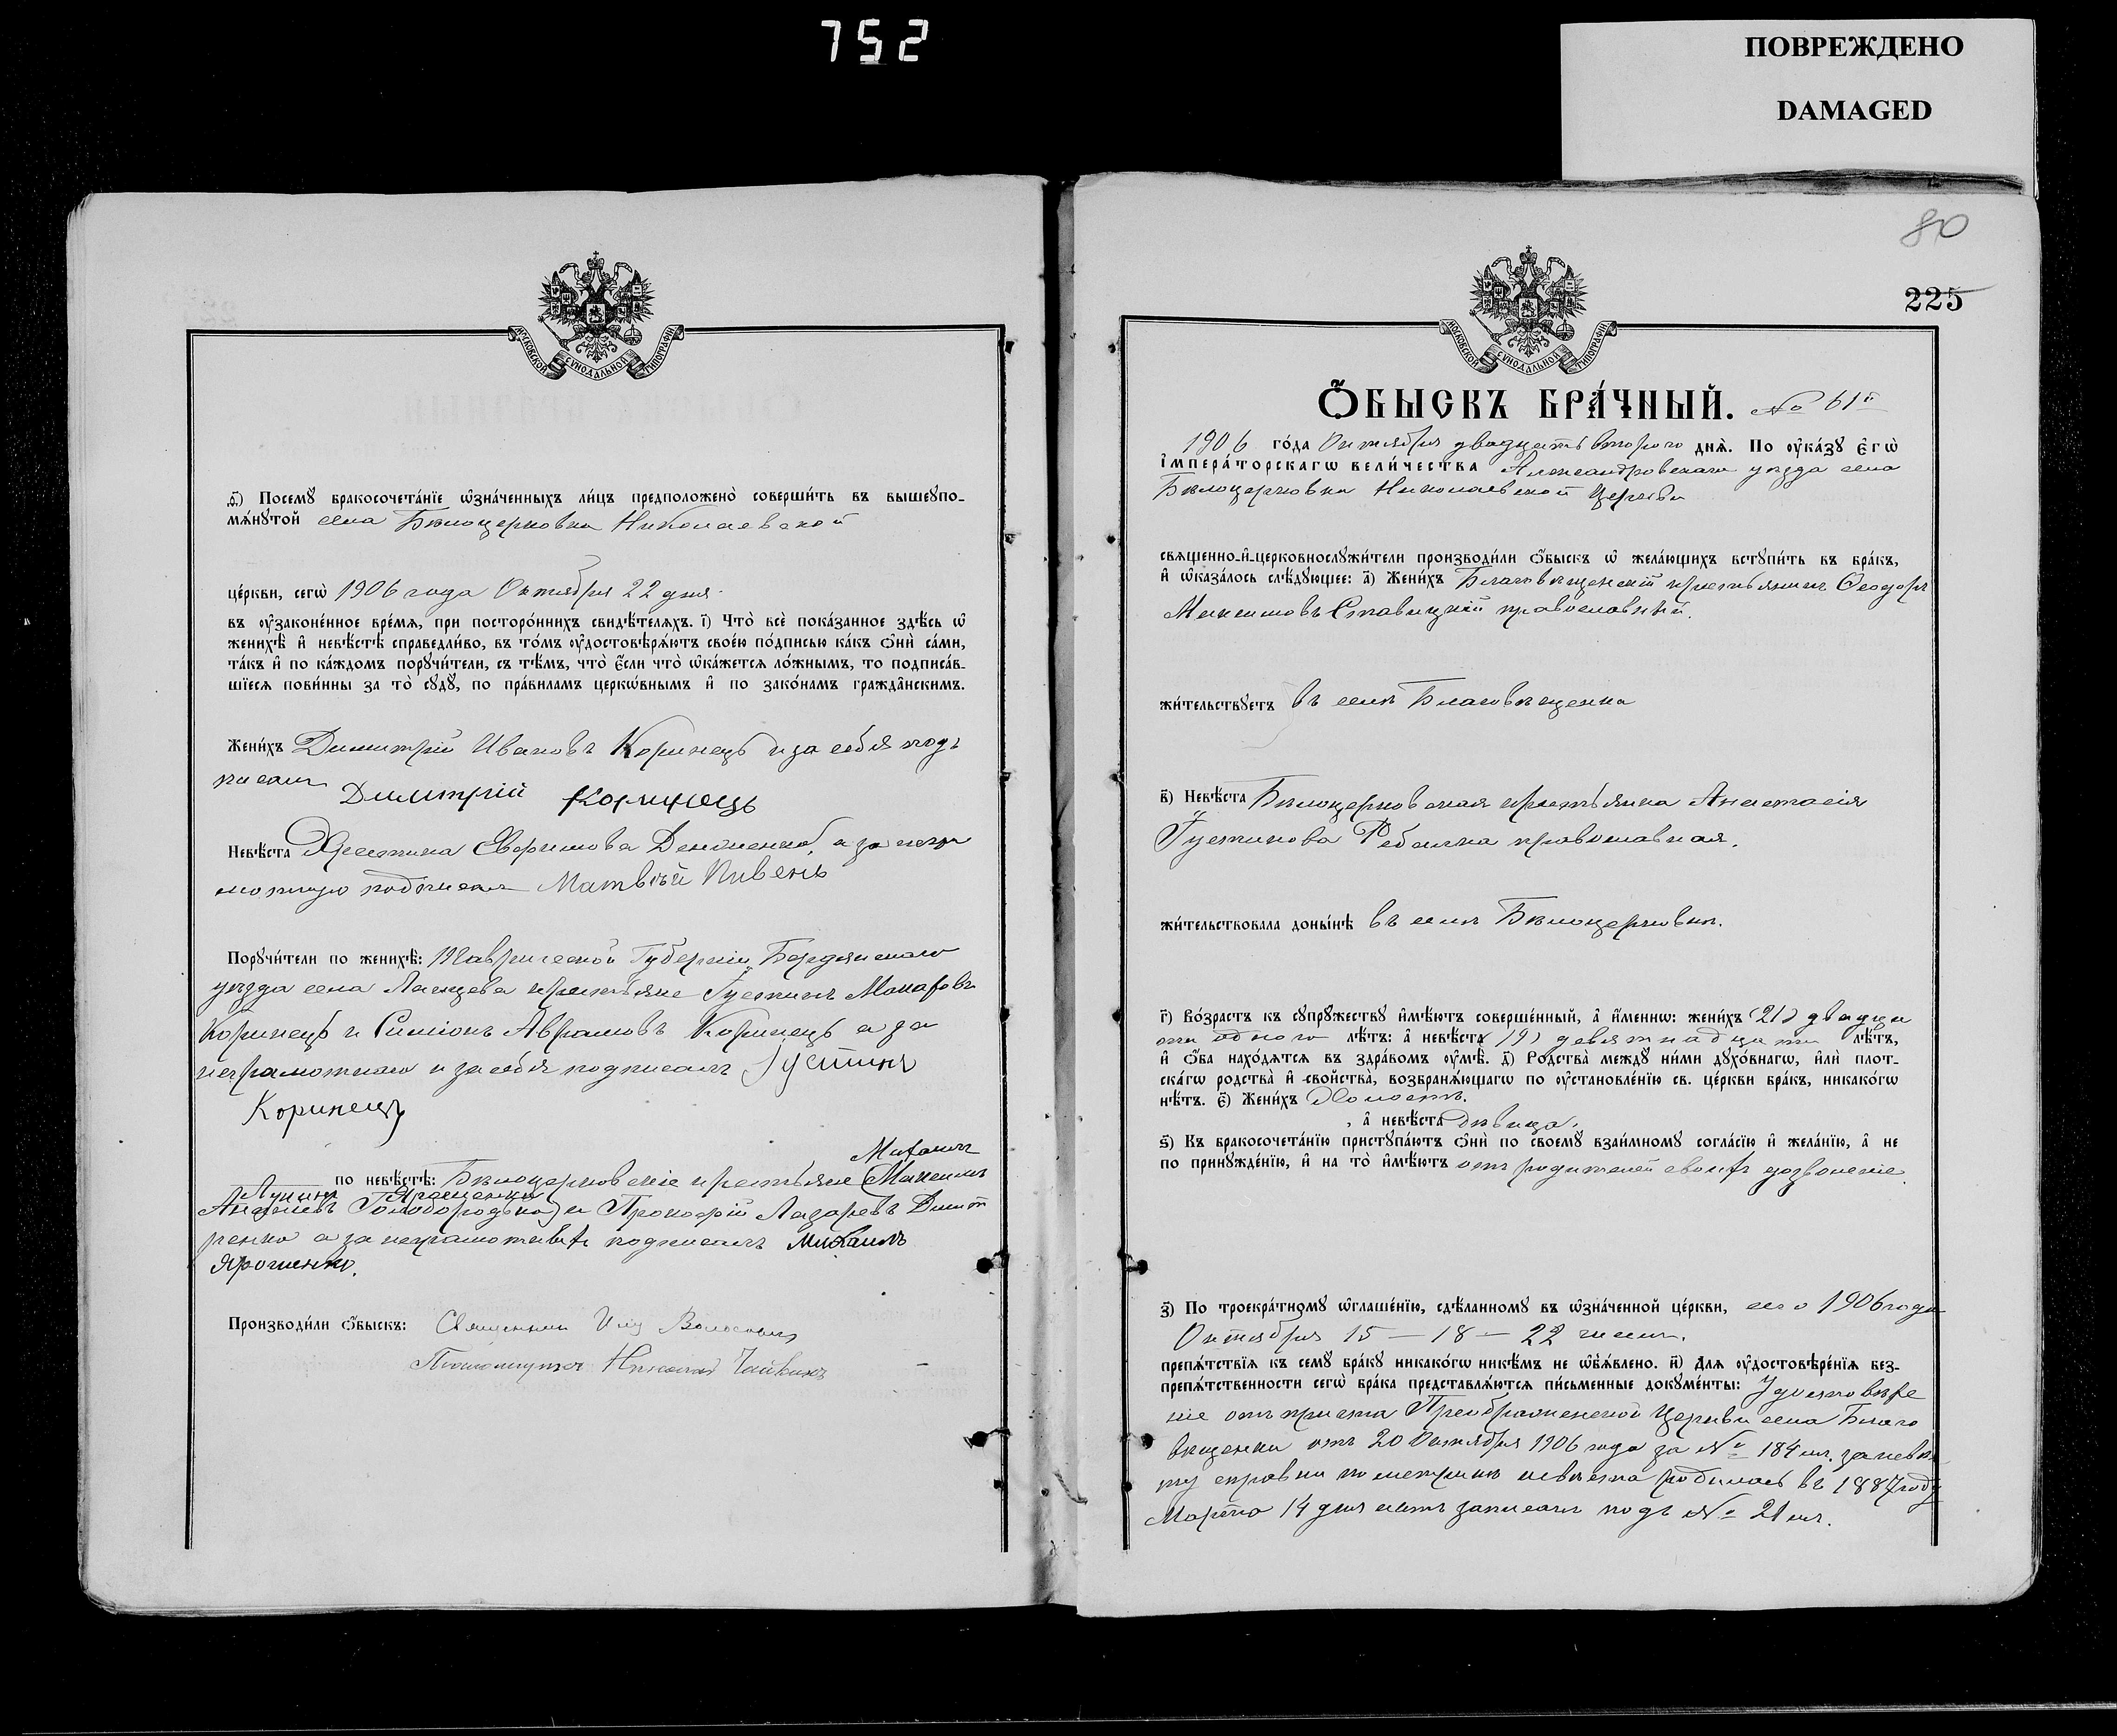 752
ПОВРЕЖДЕНО
DAMAGED
МОСКОВСКОЙ СУНОДАЛЬНОЙ ТИПОГРАФІИ
ѳ҃) Посемꙋ̀ бракосочета́нїе ѡ҆зна́ченныхъ ли́цъ предположено̀ соверши́ть въ вышеꙋпо-
мѧ́нꙋтой села Бѣлоцерковка Николаевской
це́ркви, сегѡ̀ 1906 года Октября 22 дня
въ ᲂу҆зако́ненное вре́мѧ, при посторо́ннихъ свидѣ́телѧхъ. і҃) Что̀ всѐ пока́занное здѣ́сь ѡ҆
женихѣ̀ и҆ невѣ́стѣ справедли́во, въ то́мъ ᲂу҆достовѣрѧ́ютъ свое́ю по́дписью ка́къ ѻ҆нѝ са́ми,
та́къ и҆ по ка́ждомъ порꙋчи́тели, съ тѣ́мъ, что̀ є҆́сли что̀ ѡ҆ка́жетсѧ ло́жнымъ, то подписа́в-
шїесѧ пови́нны за то̀ сꙋдꙋ̀, по пра́виламъ церкѡ́внымъ и҆ по зако́намъ гражда̑нскимъ.
Жени́хъ Димитрій Ивановъ Коринець и за себя под
писалъ Димитрій Коринець
Невѣ́ста Ефимова а за негра
мотную подписалъ Матвѣй Пивень
Порꙋчи́тели по женихѣ̀: Таврической Губерніи Бердянскаго
уѣзда села крестьяне Іустинъ Макаровъ
Коринець и Симіонъ Аврамовъ Коринець а за
неграмотнаго и за себя подписалъ Іустинъ
Коринець
Михаилъ
по невѣ́стѣ: Бѣлоцерковскіе крестьяне (Максимъ
Ярошенко
Голобородько) и Прокофій Лазаревъ Дмит
ренко а за неграмотныхъ подписалъ Михаилъ
Ярошенко.
Производи́ли ѻ҆́быскъ: Священникъ
Псаломщикъ Николай
80
225
МОСКОВСКОЙ СУНОДАЛЬНОЙ ТИПОГРАФІИ
Ѻ҆́БЫСКЪ БРА́ЧНЫЙ. № 61й
1906 го́да Октября двадцать второго днѧ̀. По ᲂу҆ка́зꙋ є҆гѡ̀
і҆мпера́торскагѡ вели́чества Александровскаго уѣзда села
Бѣлоцерковка Николаевской Церкви
свѧще́нно-и҆-церковнослꙋжи́тели производи́ли ѻ҆́быскъ ѡ҆ жела́ющихъ встꙋпи́ть въ бра́къ,
и҆ ѡ҆каза́лось слѣ́дꙋющее: а҃) Жени́хъ Благовѣщенскій крестьянинъ Ѳеодоръ
Максимовъ Ставицкій православный.
жи́тельствꙋетъ въ селѣ Благовѣщенка
в҃) Невѣ́ста Бѣлоцерковская крестьянка Анастасія
Іустинова Ребалка православная.
жи́тельствовала доны́нѣ въ селѣ Бѣлоцерковкѣ.
г҃) Во́зрастъ къ сꙋпрꙋ́жествꙋ и҆мѣ́ютъ соверше́нный, а҆ и҆́менно: жени́хъ (21) двадца
ти одного лѣ́тъ: а҆ невѣ́ста (19) девятнадцати лѣ́тъ,
и҆ ѻ҆́ба нахо́дѧтсѧ въ здра́вомъ ᲂу҆мѣ̀. д҃) Ро́дства̀ междꙋ̀ ни́ми дꙋхо́внагѡ, и҆лѝ плот-
ска́гѡ родства̀ и҆ сво́йства̀, возбранѧ́ющагѡ по ᲂу҆становле́нїю св. це́ркви бра́къ, никако́гѡ
нѣ́тъ. є҃) Жени́хъ Холостъ.
, а҆ невѣ́ста Дѣвица.
ѕ҃) Къ бракосочета́нїю пристꙋпа́ютъ ѻ҆нѝ по своемꙋ̀ взаи́мномꙋ согла́сїю и҆ жела́нїю, а҆ не
по принꙋжде́нїю, и҆ на то̀ и҆мѣ́ютъ отъ родителей своихъ дозволеніе.
з҃) По троекра́тномꙋ ѡ҆глаше́нїю, сдѣ́ланномꙋ въ ѡ҆зна́ченной це́ркви, сего 1906 года
Октября 15 — 18 — 22 чиселъ.
препѧ́тствїѧ къ семꙋ̀ бра́кꙋ никако́гѡ никѣ́мъ не ѡ҆б̾ѧ́влено. и҃) Длѧ ᲂу҆достовѣре́нїѧ без-
препѧ́тственности сегѡ̀ бра́ка представлѧ́ютсѧ пи́сьменные докꙋме́нты: Удостовѣре
ніе отъ причта Преображенской Церкви села Благо
вѣщенки отъ 20 Октября 1906 года за № 184 мъ. за невѣс
ту справки по метрикѣ невѣста родилась въ 1887 году
Марта 14 дня актъ записанъ подъ № 21 мъ.